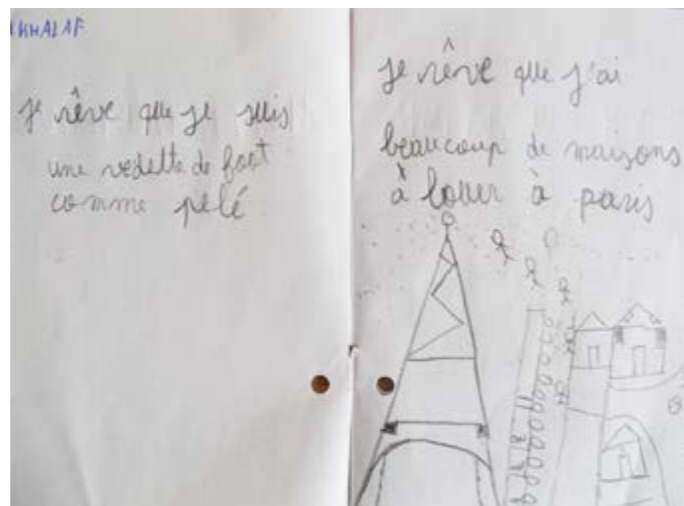 KHALAF
je rêve que je suis
une vedette de foot
comme pelé
je rêve que j'ai
beaucoup de maisons
à louer à paris